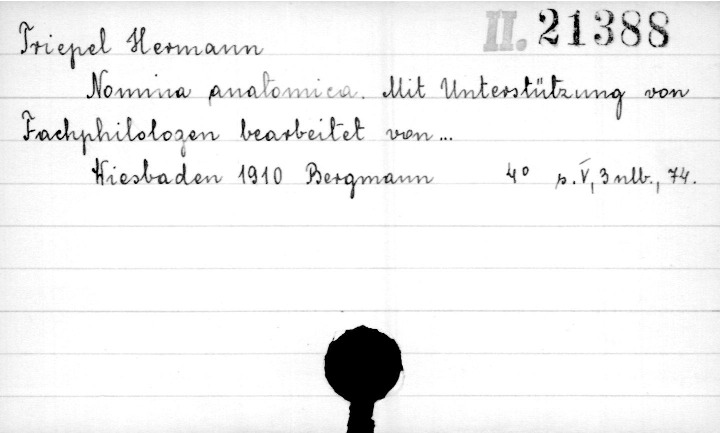 Triepel Hermann II. 21388
Nomina anatomica. Mit Unterstützung von
Fachphilologen bearbeitet von...
Wiesbaden 1910 Bergmann 4° s. V, 3 nlb., 74.